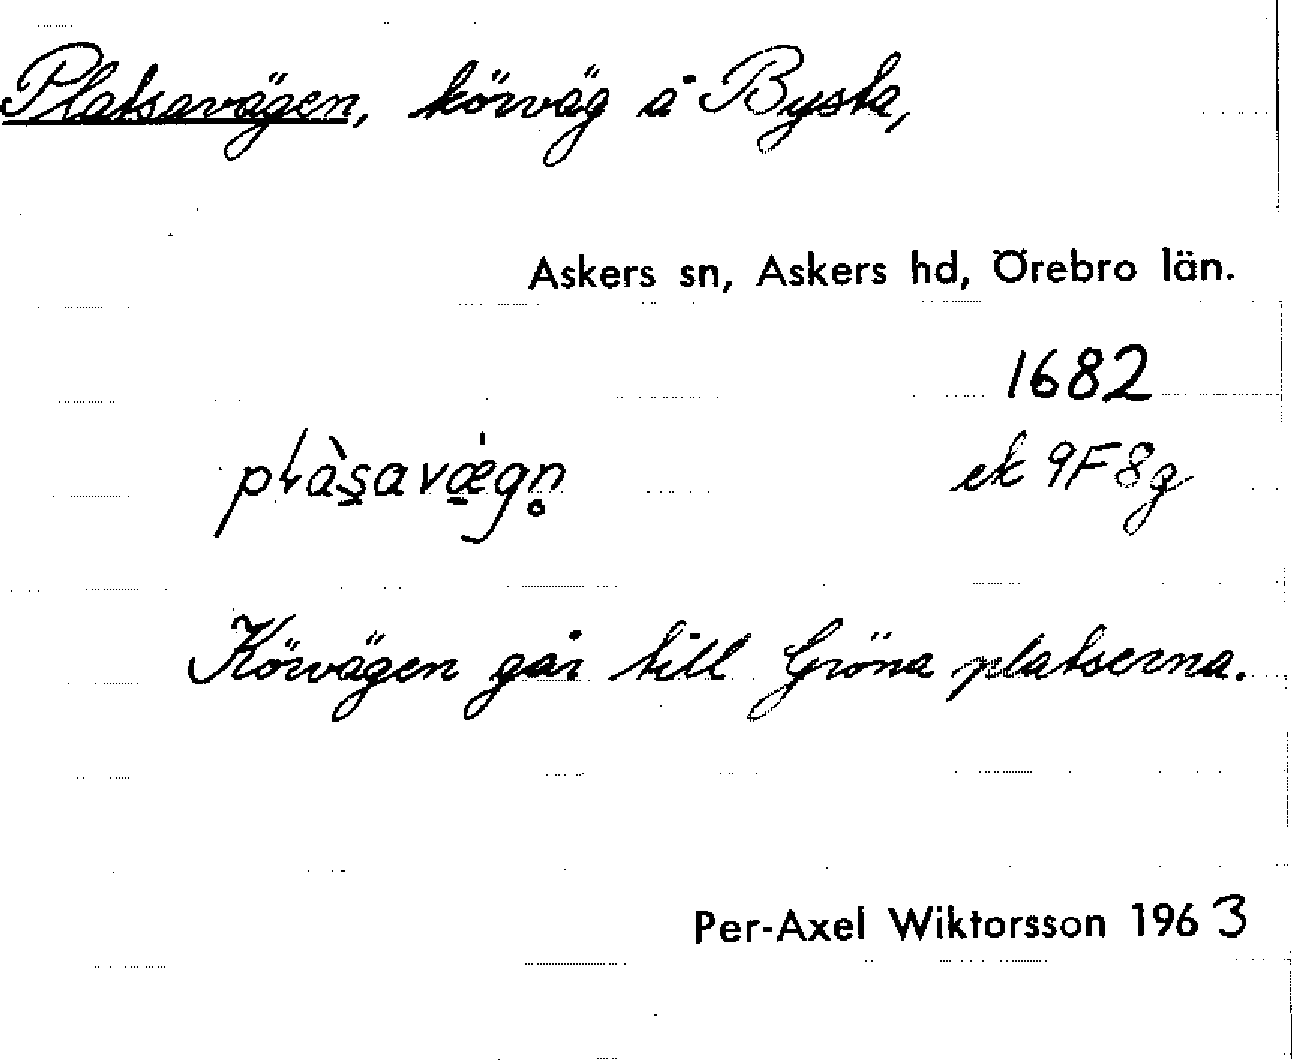 Platsavägen, körväg å Bysta,
Askers sn, Askers hd, Örebro län.
1682
plàsavǽgn̥
ek 9F8g
Körvägen går till Gröna platserna.
Per-Axel Wiktorsson 1963